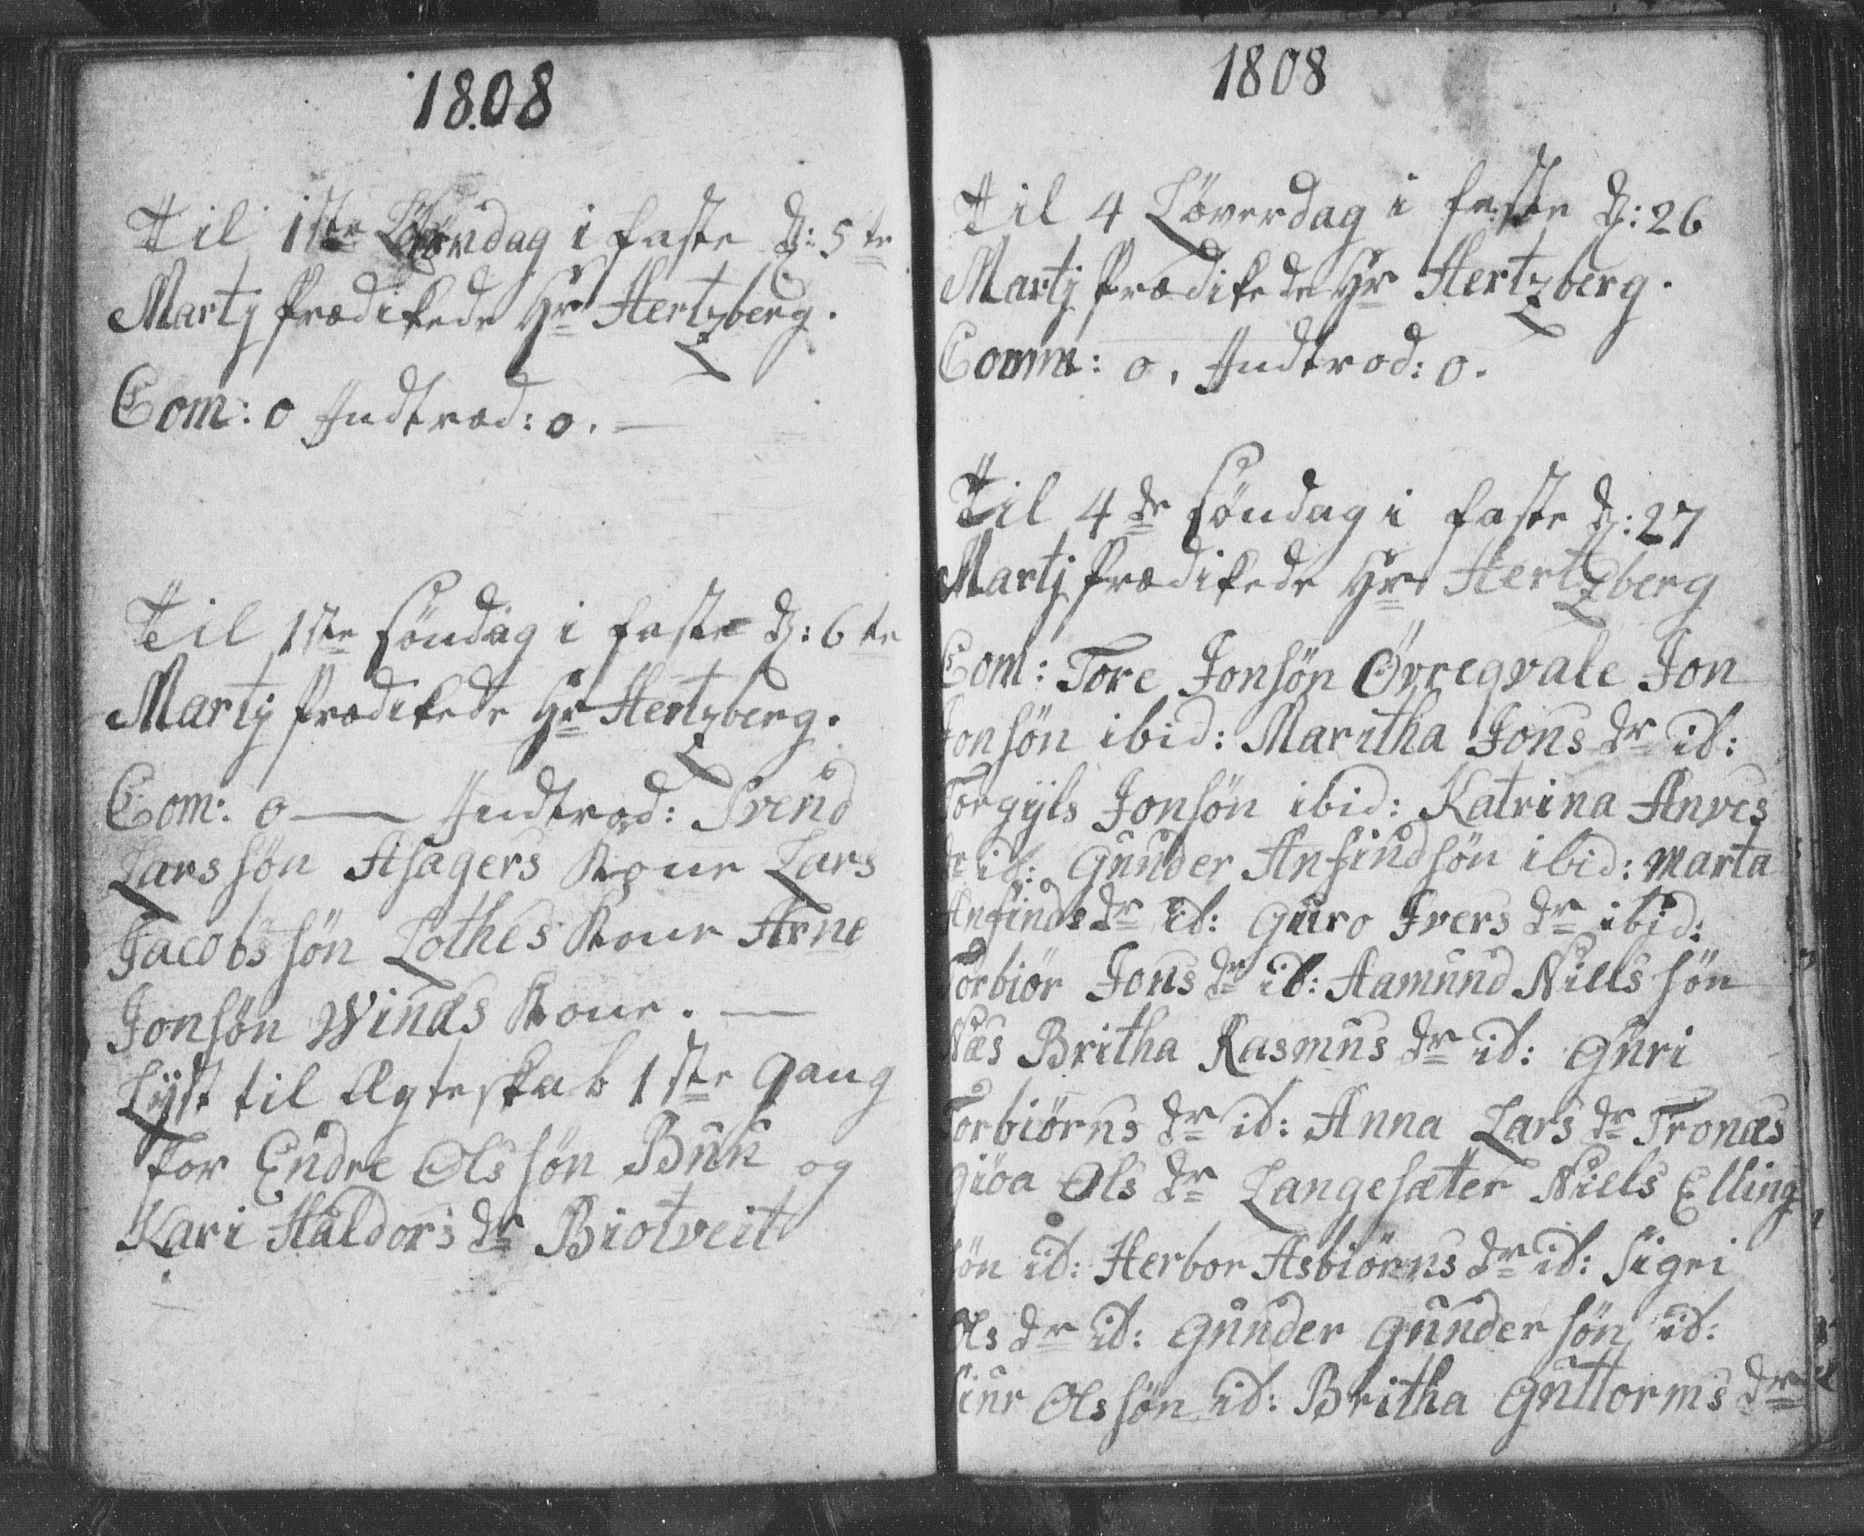 1808
Til 1ste Löverdag i faste D: 5te
Martj Prædikede Hr Hertzberg.
Com: 0 Indtræd: 0. —
Til 1ste Söndag i faste D: 6te
Martj Prædikede Hr Hertzberg.
Com: 0 — Indtræd: Svend
Lars sön Asagers Kone Lars
Jacobs sön Lothes Kone Arne
Jonsön Winæs Kone. —
Lyst til Ægteskab 1ste Gang
for Endre Ols sön Buu og
Kari Haldors dr Biotveit
1808
Til 4 Löverdag i faste D: 26
Martj Prædikede Hr Hertzberg.
Comm: 0, Indtræd: 0.
Til 4de Söndag i faste D: 27
Martj Prædikede Hr Hertzberg
Com: Tore Jonsön Övreqvale Jon
Jonsön ibid: Maritha Jons dr id:
Torgyls Jonsön ibid: Katrina Anves
dr id: Gunder Anfindsön ibid: Marta
Anfinds dr id: Guro Ivers dr ibid:
Torbiör Jons dr id: Aamund Nills sön
Næs Britha Rasmus dr id: Guri
Torbiörns dr id: Anna Lars dr Tronæs
Giöa Ols dr Langesæter Niels Elling
sön id: Herbor Asbiörns dr id: Sigri
Ols dr id: Gunder Gunder sön id:
Siur Ols sön id: Britha Guttorms dr